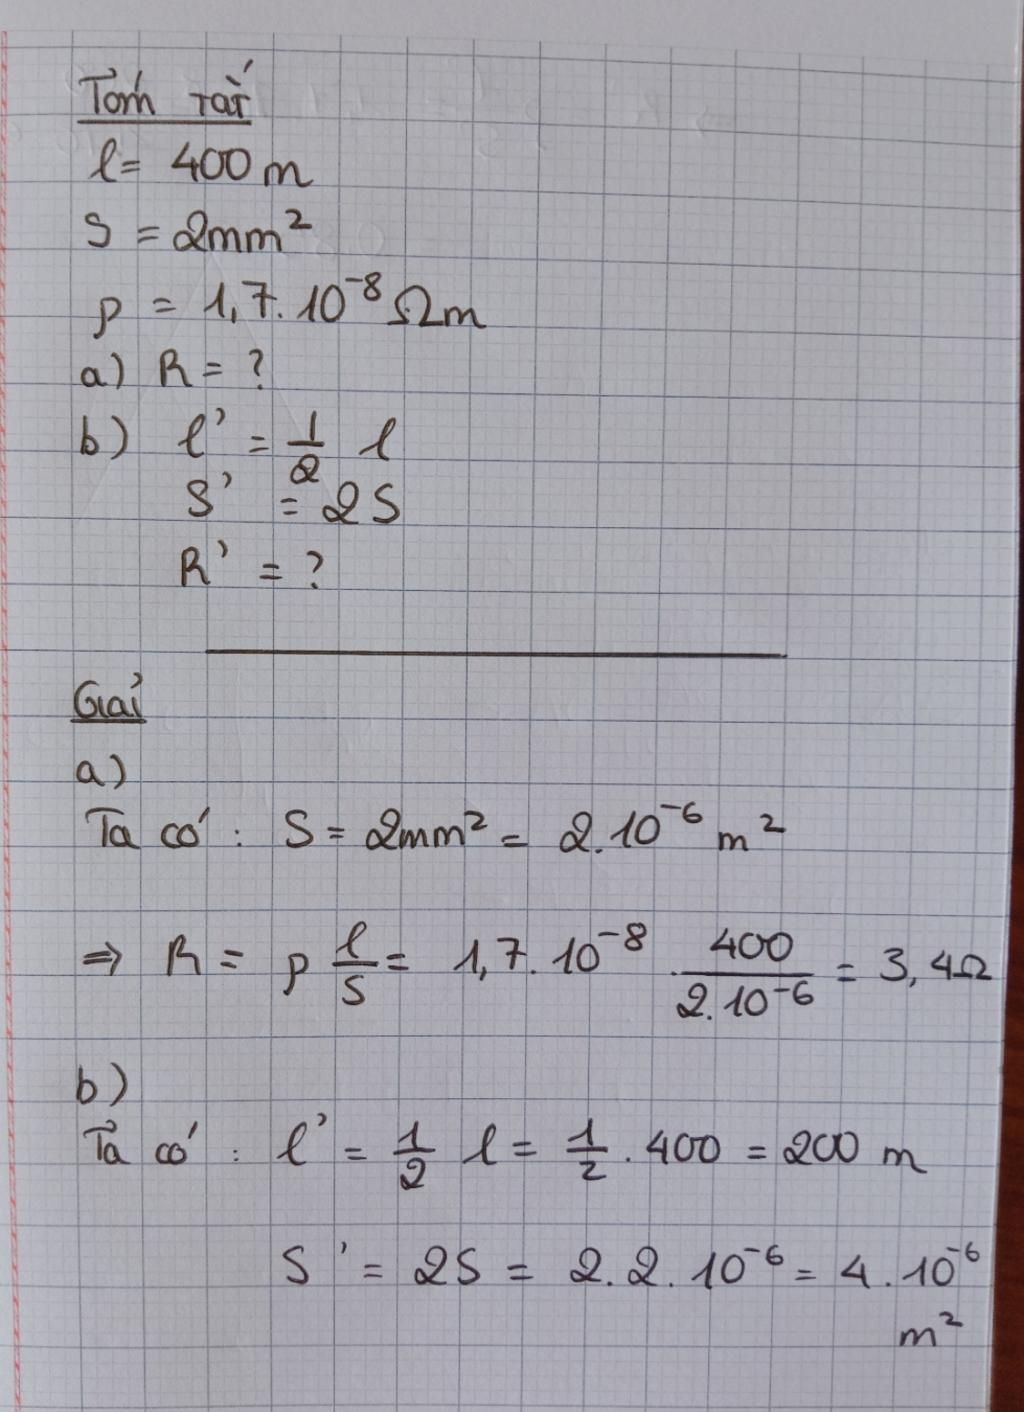 Tóm tắt
l = 400 m
S = 2mm²
ρ = 1,7.10⁻⁸ Ωm
a) R = ?
b) l' = 1/2 l
S' = 2S
R' = ?
Giải
a)
Ta có : S = 2mm² = 2.10⁻⁶ m²
⇒ R = ρ l/S = 1,7.10⁻⁸ . 400/2.10⁻⁶ = 3,4Ω
b)
Ta có : l' = 1/2 l = 1/2 . 400 = 200 m
S' = 2S = 2.2.10⁻⁶ = 4.10⁻⁶
m²